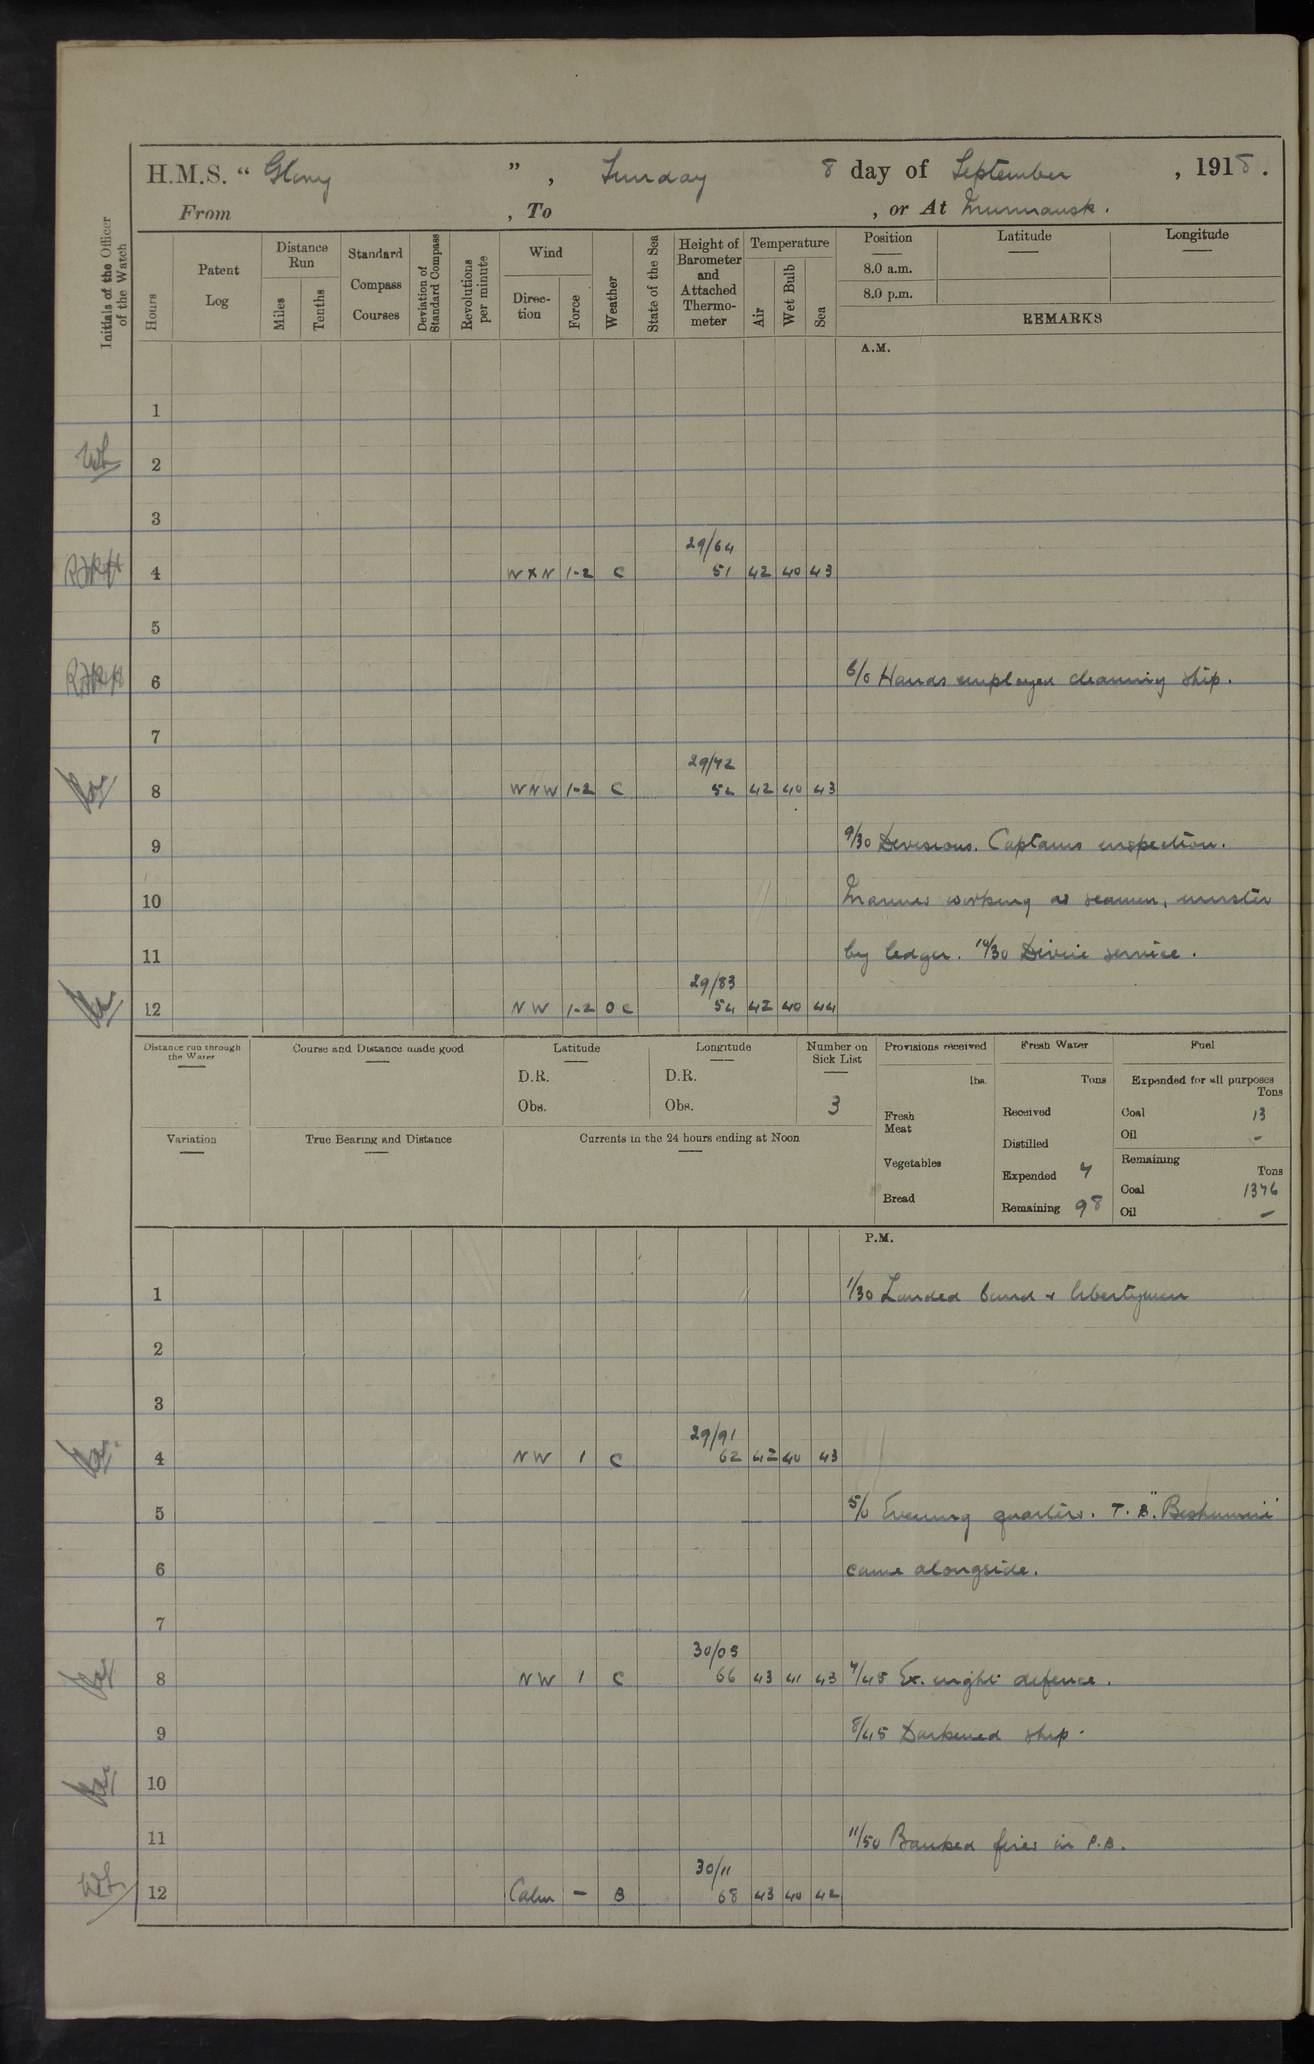 H.M.S. “ Glory ” , Sunday 8 day of September , 1918 .
From , To , or At Murmansk .
Initials of the Officer of the Watch
Hours
Patent Log
Distance Run
Miles
Tenths
Standard Compass Courses
Deviation of Standard Compass
Revolutions per minute
Wind
Direc-tion
Force
Weather
State of the Sea
Height of Barometer and Attached Thermo-meter
Temperature
Air
Wet Bulb
Sea
Position
8.0 a.m.
8.0 p.m.
Latitude
Longitude
REMARKS
A.M.
1
2
3
29/64
4 W x N 1-2 C 51 42 40 43
5
6 6/0 Hands employed cleaning ship.
7
29/72
8 WNW 1-2 C 52 42 40 43
9 9/30 Divisions. Captains inspection.
10 Marines working as seamen, muster
11 by ledger. 10/30 Divine service.
29/83
12 NW 1-2 O C 54 42 40 44
Distance run through the Water
Course and Distance made good
Latitude
D.R.
Obs.
Longitude
D.R.
Obs.
Number on Sick List
3
Variation
True Bearing and Distance
Currents in the 24 hours ending at Noon
Provisions received
lbs.
Fresh Meat
Vegetables
Bread
Fresh Water
Tons
Received
Distilled
Expended 7
Remaining 98
Fuel
Expended for all purposes
Tons
Coal 13
Oil -
Remaining
Tons
Coal 1376
Oil -
P.M.
1 1/30 Landed band & libertymen
2
3
29/91
4 NW 1 C 62 42 40 43
5 5/0 Evening quarters. T. B.
6 came alongside.
7
30/05
8 NW 1 C 66 43 41 43 7/45 Ex. night defence.
9 8/45 Darkened ship.
10
11 11/50 Banked fires in P.B.
30/11
12 Calm - B 68 43 40 42